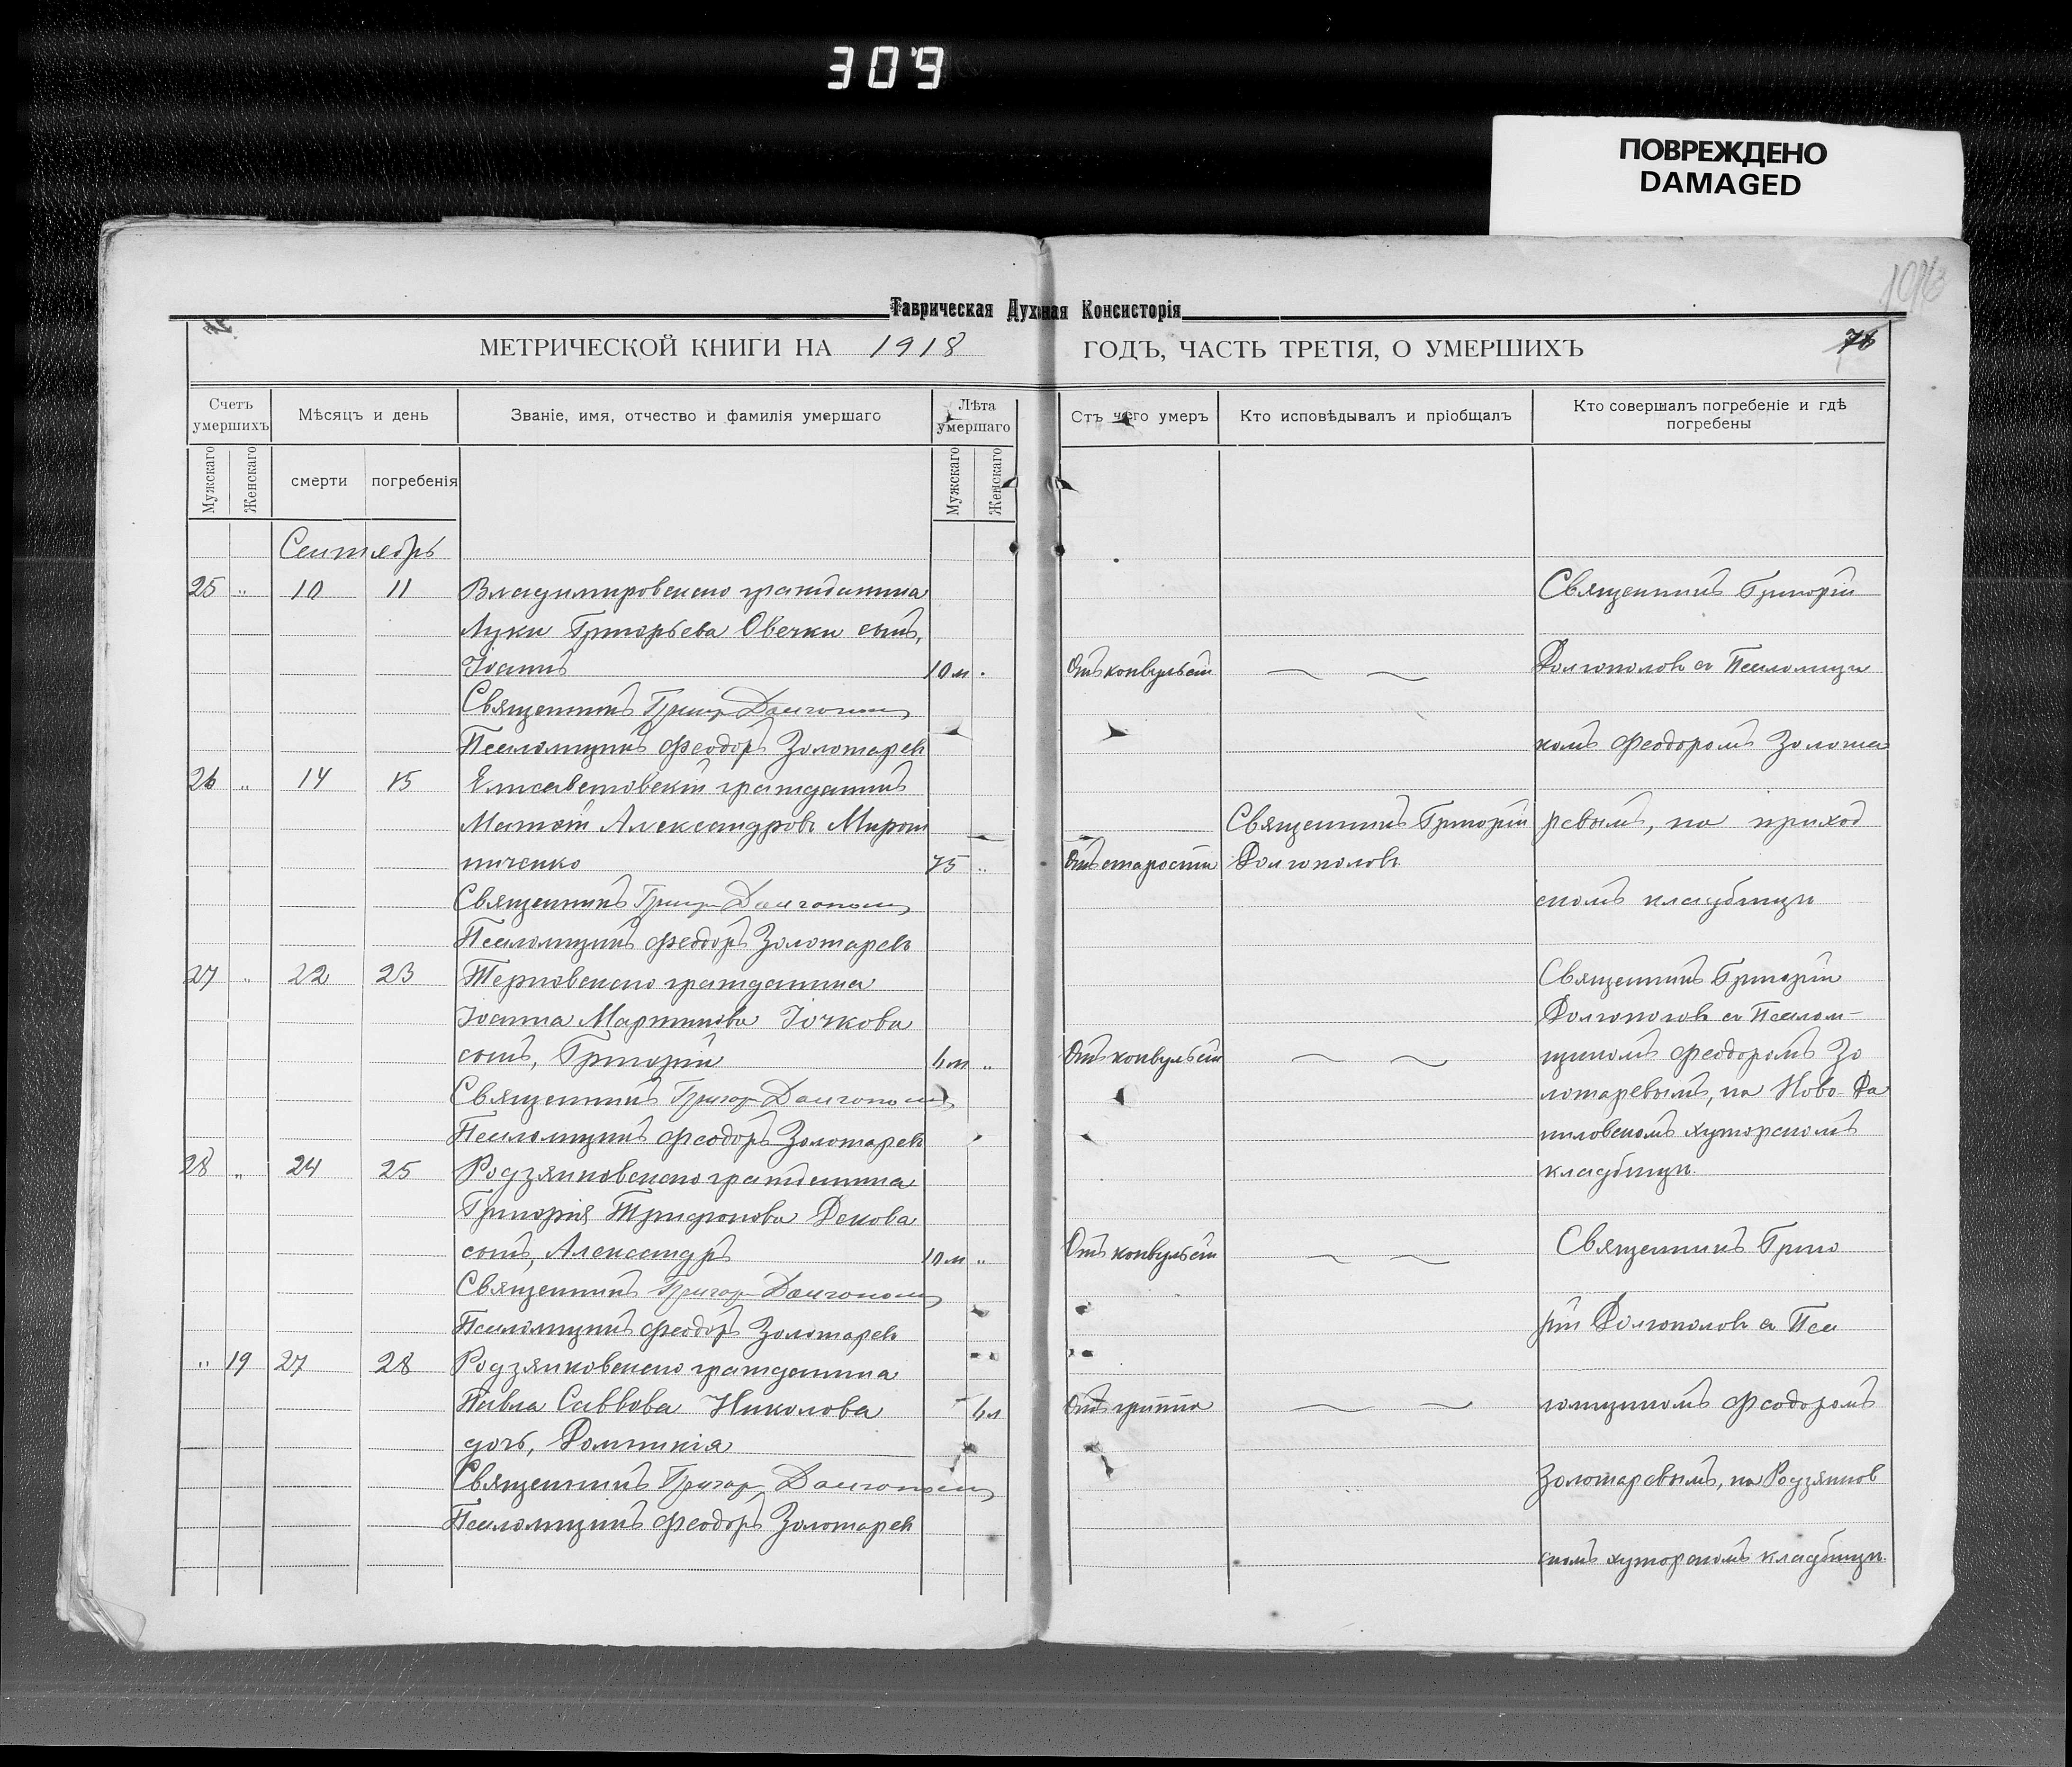 309
ПОВРЕЖДЕНО
DAMAGED
Таврическая Духовная Консисторія
МЕТРИЧЕСКОЙ КНИГИ НА 1918 ГОДЪ, ЧАСТЬ ТРЕТІЯ, О УМЕРШИХЪ
Счетъ умершихъ
Мѣсяцъ и день
Званіе, имя, отчество и фамилія умершаго
Лѣта умершаго
Отъ чего умеръ
Кто исповѣдывалъ и пріобщалъ
Кто совершалъ погребеніе и гдѣ погребены
Мужскаго
Женскаго
смерти
погребенія
Мужскаго
Женскаго
Сентябрь
25 " 10 11 Владимировскаго гражданина
Луки Григорьева Овечки сынъ,
Іоаннъ 10 м. Отъ конвульсій
Священникъ Григор Долгополов
Псаломщикъ Феодоръ Золотаревъ
26 " 14 15 Елисаветовскій гражданинъ
Матѳій Александровъ Мирош
ниченко 75 " Отъ старости Священникъ Григорій
Долгополовъ
Священникъ Григор Долгополов
Псаломщикъ Феодоръ Золотаревъ
Священникъ Григорій
Долгополовъ съ Псаломщи
комъ Феодоромъ Золота
ревымъ, на приход
скомъ кладбищѣ
27 " 22 23 Терновскаго гражданина
Іоанна Мартинова Іочкова
сынъ, Григорій 4 м " Отъ конвульсій
Священникъ Григор Долгополов
Псаломщикъ Феодоръ Золотаревъ
Священникъ Григорій
Долгополовъ съ Псалом-
щикомъ Феодоромъ Зо
лотаревымъ, на Ново-Да
ниловскомъ хуторскомъ
кладбищѣ.
28 " 24 25 Родзянковскаго гражданина
Григорія Трифонова Декова
сынъ, Александръ 10 м " Отъ конвульсій
Священникъ Григор Долгополов
Псаломщикъ Феодоръ Золотаревъ
" 19 27 28 Родзянковскаго гражданина
Павла Саввова Николова 4 л Отъ гриппа
дочь, Домникія
Священникъ Григор Долгополов
Псаломщикъ Феодоръ Золотаревъ
Священникъ Григо
рій Долгополовъ съ Пса
ломщикомъ Феодоромъ
Золотаревымъ, на Родзянков
скомъ хуторскомъ кладбищѣ.